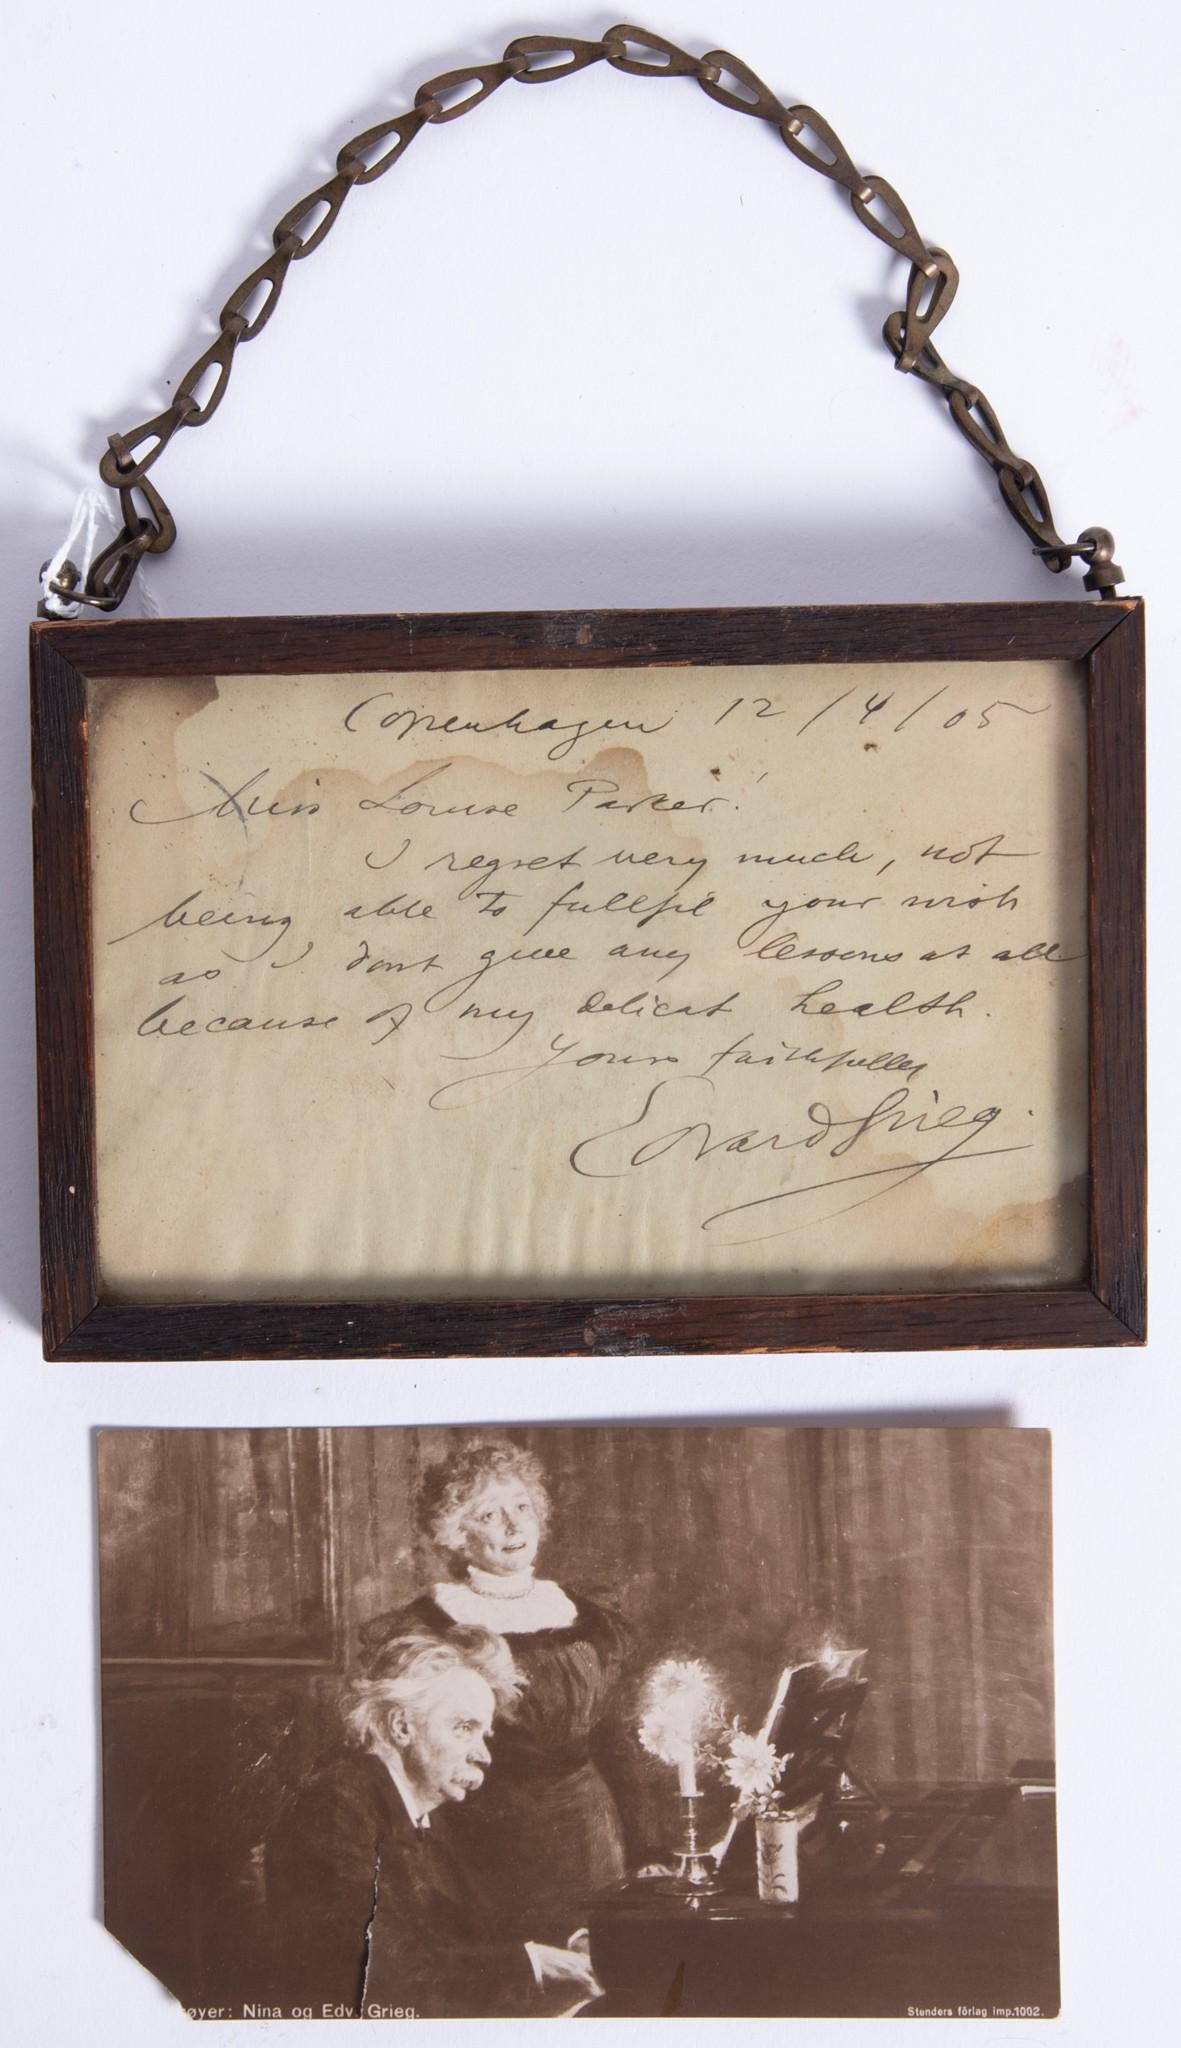 Copenhagen 12/4/05
Miss Louise Parker!
I regret very much, not
being able to fullfil your wish
as I dont give any lessons at all
because of my delicat health.
Yours faithfully
Edvard Grieg.
øyer: Nina og Edv. Grieg.
Stenders förlag imp.1002.